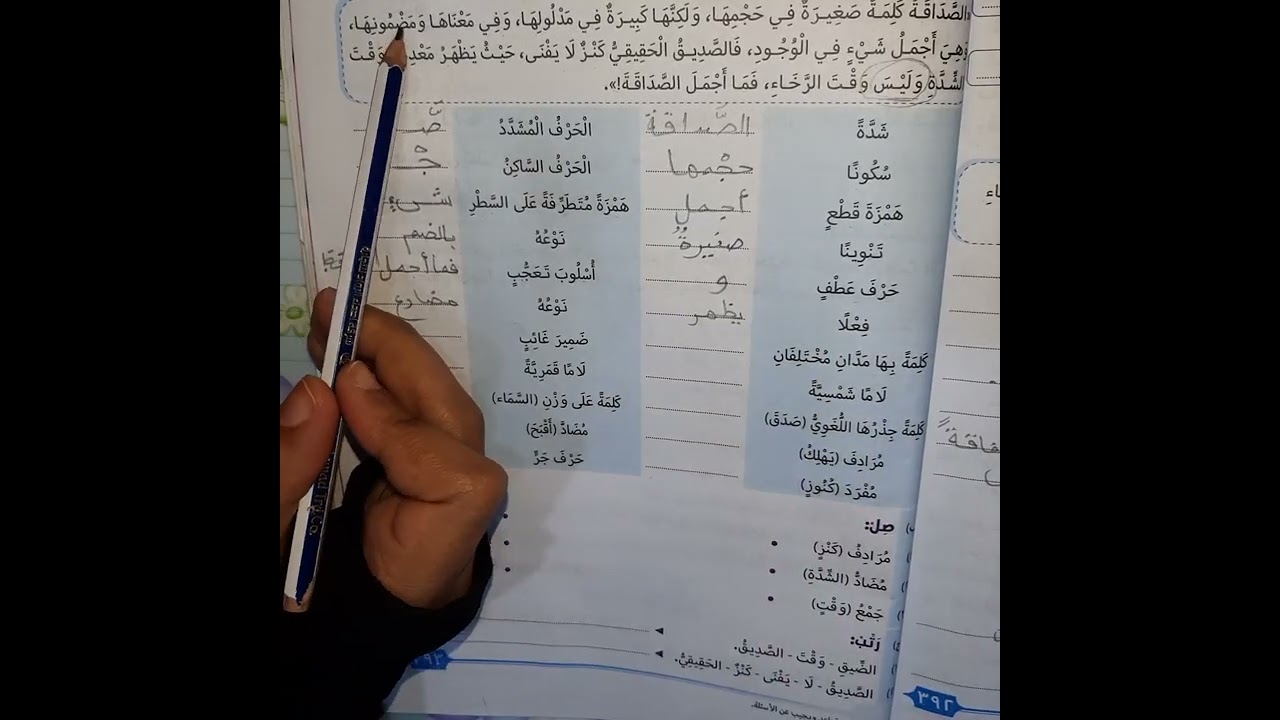 الصَّدَاقَةُ كَلِمَةٌ صَغِيرَةٌ فِي حَجْمِهَا، وَلَكِنَّهَا كَبِيرَةٌ فِي مَدْلُولِهَا، وَفِي مَعْنَاهَا وَمَضْمُونِهَا،
وَهِيَ أَجْمَلُ شَيْءٍ فِي الْوُجُودِ، فَالصَّدِيقُ الْحَقِيقِيُّ كَنْزٌ لَا يَفْنَى، حَيْثُ يَظْهَرُ وَقْتَ
الشِّدَّةِ وَلَيْسَ وَقْتَ الرَّخَاءِ، فَمَا أَجْمَلَ الصَّدَاقَةَ!».
شَدَّةً الصَّداقة الْحَرْفُ الْمُشَدَّدُ صَّ
سُكُونًا حجْمها الْحَرْفُ السَّاكِنُ جْ
هَمْزَةَ قَطْعٍ أجمل هَمْزَةً مُتَطَرِّفَةً عَلَى السَّطْرِ شيء
تَنْوِينًا صغيرةٌ نَوْعُهُ بالضم
حَرْفَ عَطْفٍ و أُسْلُوبَ تَعَجُّبٍ فما أجمل
فِعْلًا يظهر نَوْعُهُ مضارع
كَلِمَةً بِهَا مَدَّانِ مُخْتَلِفَانِ ضَمِيرَ غَائِبٍ
لَامًا شَمْسِيَّةً لَامًا قَمَرِيَّةً
كَلِمَةً جِذْرُهَا اللُّغَوِيُّ (صَدَقَ) كَلِمَةً عَلَى وَزْنِ (السَّمَاء)
مُرَادِفَ (يَهْلِكُ) مُضَادَّ (أَقْبَحَ)
مُفْرَدَ (كُنُوزٍ) حَرْفَ جَرٍّ
صِلْ:
مُرَادِفُ (كَنْزٍ)
مُضَادُّ (الشِّدَّةِ)
جَمْعُ (وَقْتٍ)
رَتِّبْ:
الضِّيقِ - وَقْتَ - الصَّدِيقُ.
الصَّدِيقُ - لَا - يَفْنَى - كَنْزٌ - الحَقِيقِيُّ.
ويجيب عن الأسئلة.
٣٩٣
٣٩٢